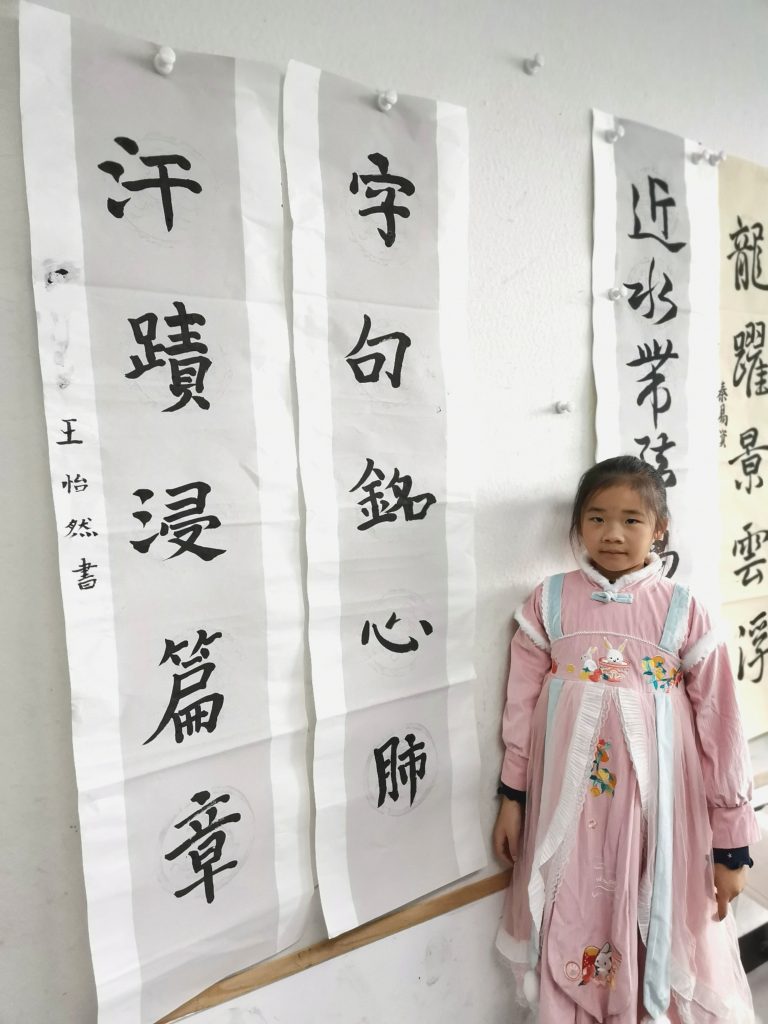 龍躍景雲浮
秦易
近水帶
字句銘心肺
汗蹟浸篇章
王怡然書